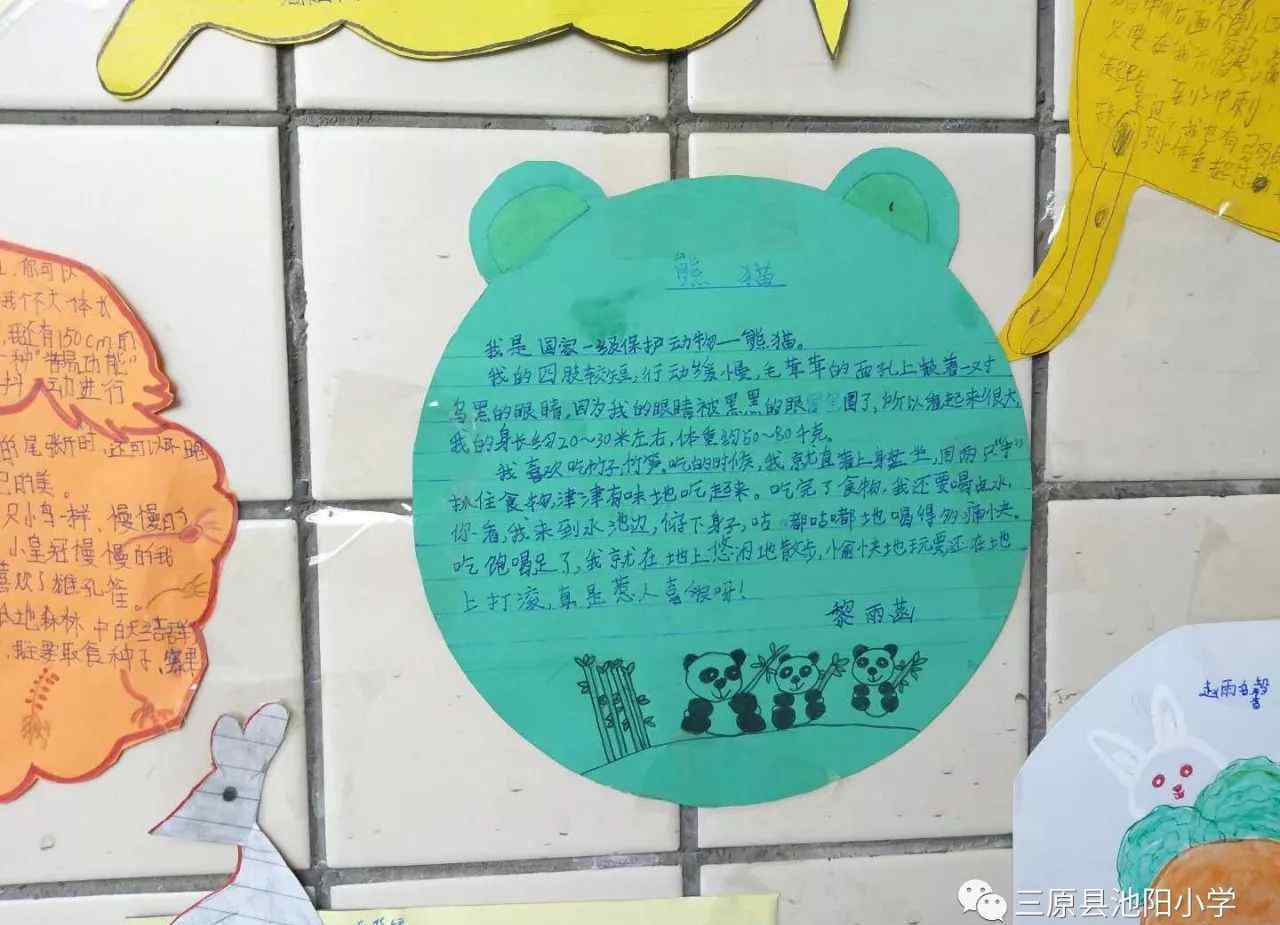 熊猫
我是国家一级保护动物—熊猫。
我的四肢较短,行动缓慢,毛茸茸的面孔上散着一对
乌黑的眼睛,因为我的眼睛被黑黑的眼圈了,所以看起来很大,
我的身长约20~30米左右,体重约50~80千克。
我喜欢吃竹子,竹笋,吃的时候,我就直着上身盘坐,用两只"手"
抓住食物,津津有味地吃起来。吃完了食物,我还要喝点水,
你看,我来到水池边,俯下身子,咕嘟咕嘟地喝得多痛快。
吃饱喝足了,我就在地上悠闲地散步,愉快地玩耍还在地
上打滚,真是惹人喜欢呀!
黎雨菡
你可以
我个不大体长
我还有150cm的
一种
动进行
尾张开时,还可以
己的美。
只小鸟一样,慢慢的
小皇冠慢慢的我
喜欢了雄孔雀。
地森林中的
取食种子、
只要在我
赵雨
三原县池阳小学